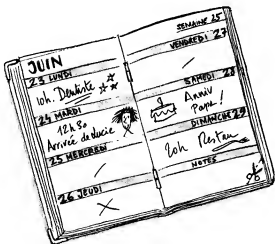 JUIN
23 LUNDI
10h. Dentiste
24 MARDI
12h30
Arrivée de Lucie!
25 MERCREDI
26 JEUDI
SEMAINE 25
VENDREDI 27
SAMEDI 28
Anniv
Papa!
DIMANCHE 29
20h Restau
NOTES